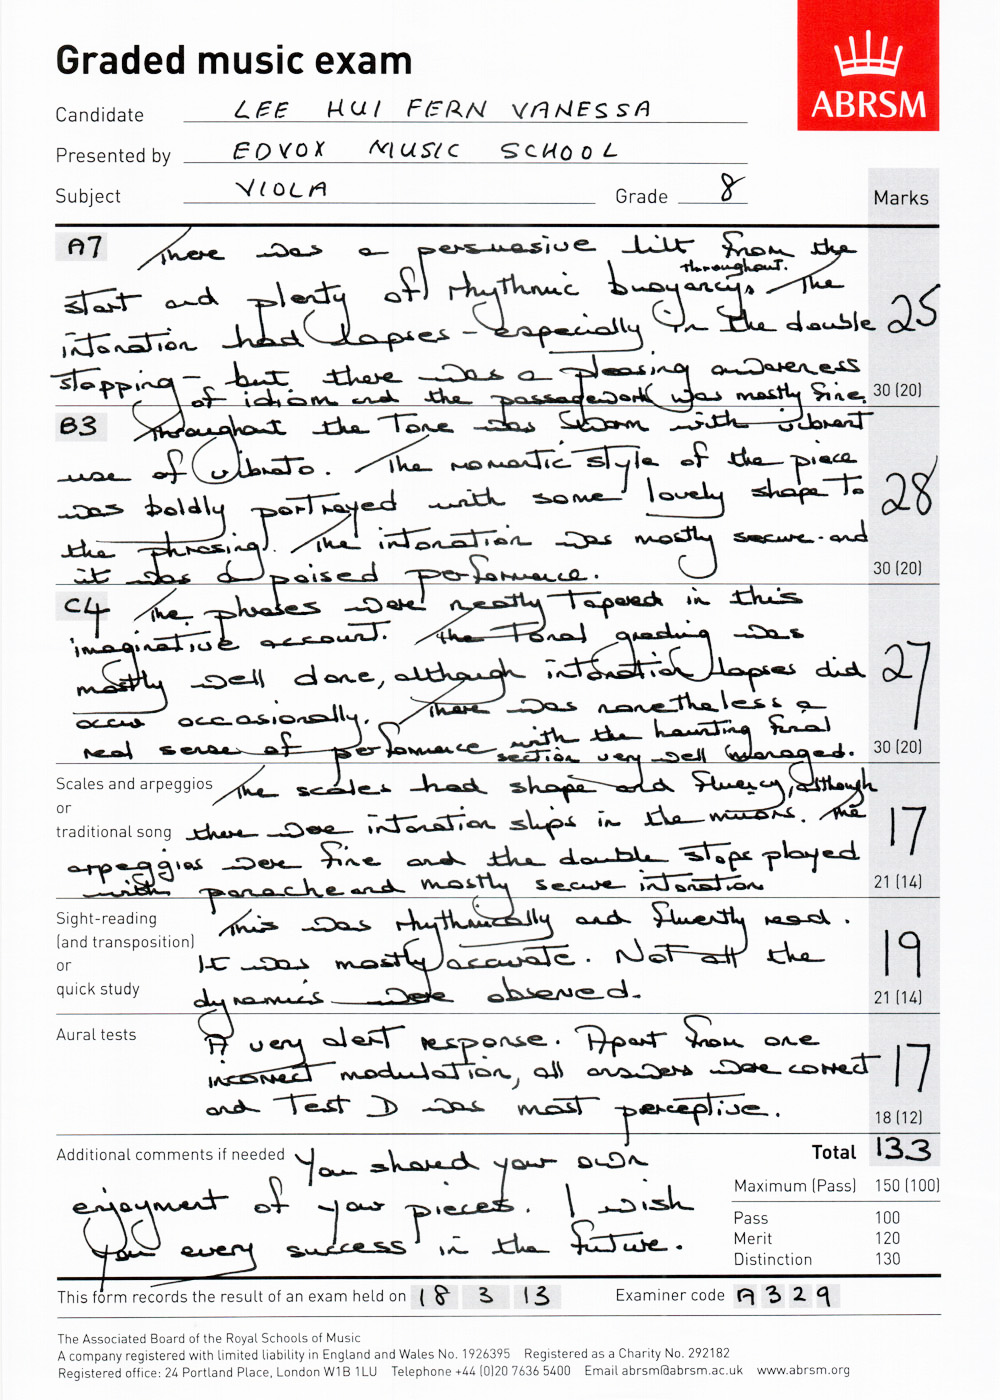 Graded music exam
ABRSM
Candidate LEE HUI FERN VANESSA
Presented by EDVOX MUSIC SCHOOL
Subject VIOLA Grade 8 Marks
A7 There was a persuasive lilt from the
start and plenty of rhythmic buoyancy throughout. The
intonation had lapses – especially in the double
stopping – but there was a pleasing awareness
of idiom and the passagework was mostly fine.
25
30 (20)
B3 Throughout the Tone was warm with vibrant
use of vibrato. The romantic style of the piece
was boldly portrayed with some lovely shape to
the phrasing. The intonation was mostly secure and
it was a poised performance.
28
30 (20)
C4 The phrases were neatly tapered in this
imaginative account. The Tonal grading was
mostly well done, although intonation lapses did
occur occasionally. There was nonetheless a
real sense of performance with the haunting final
section very well managed.
27
30 (20)
Scales and arpeggios
or
traditional song
The scales had shape and fluency, although
there were intonation slips in the minors. The
arpeggios were fine and the double stops played
with panache and mostly secure intonation
17
21 (14)
Sight-reading
(and transposition)
or
quick study
This was rhythmically and fluently read.
It was mostly accurate. Not all the
dynamics were observed.
19
21 (14)
Aural tests
A very alert response. Apart from one
incorrect modulation, all answers were correct
and Test D was most perceptive.
17
18 (12)
Additional comments if needed You shared your own
enjoyment of your pieces. I wish
you every success in the future.
Total 133
Maximum (Pass) 150 (100)
Pass 100
Merit 120
Distinction 130
This form records the result of an exam held on 18 3 13 Examiner code A329
The Associated Board of the Royal Schools of Music
A company registered with limited liability in England and Wales No. 1926395 Registered as a Charity No. 292182
Registered office: 24 Portland Place, London W1B 1LU Telephone +44 (0)20 7636 5400 Email abrsm@abrsm.ac.uk www.abrsm.org